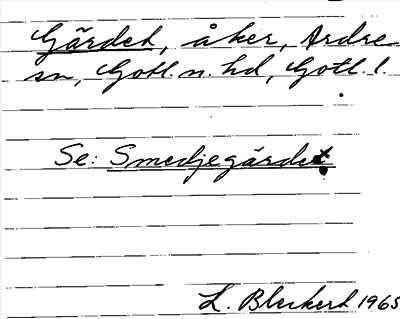 Gärdet, åker, Ardre
sn, Gotl. n. hd, Gotl. l.
Se: Smedjegärdet
L. Bleckert 1965